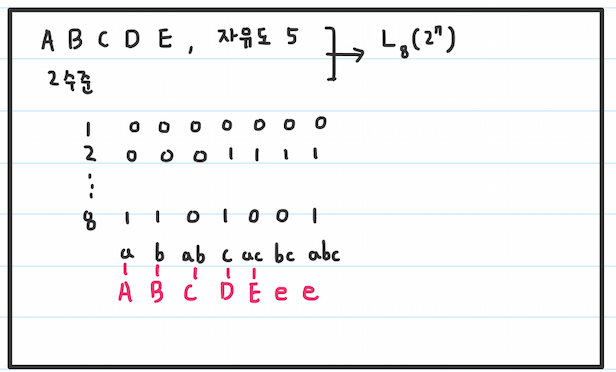 A B C D E , 자유도 5 ] → L₈(2⁷)
2수준
1 0 0 0 0 0 0 0
2 0 0 0 1 1 1 1
⋮
8 1 1 0 1 0 0 1
a b ab c ac bc abc
A B C D E e e